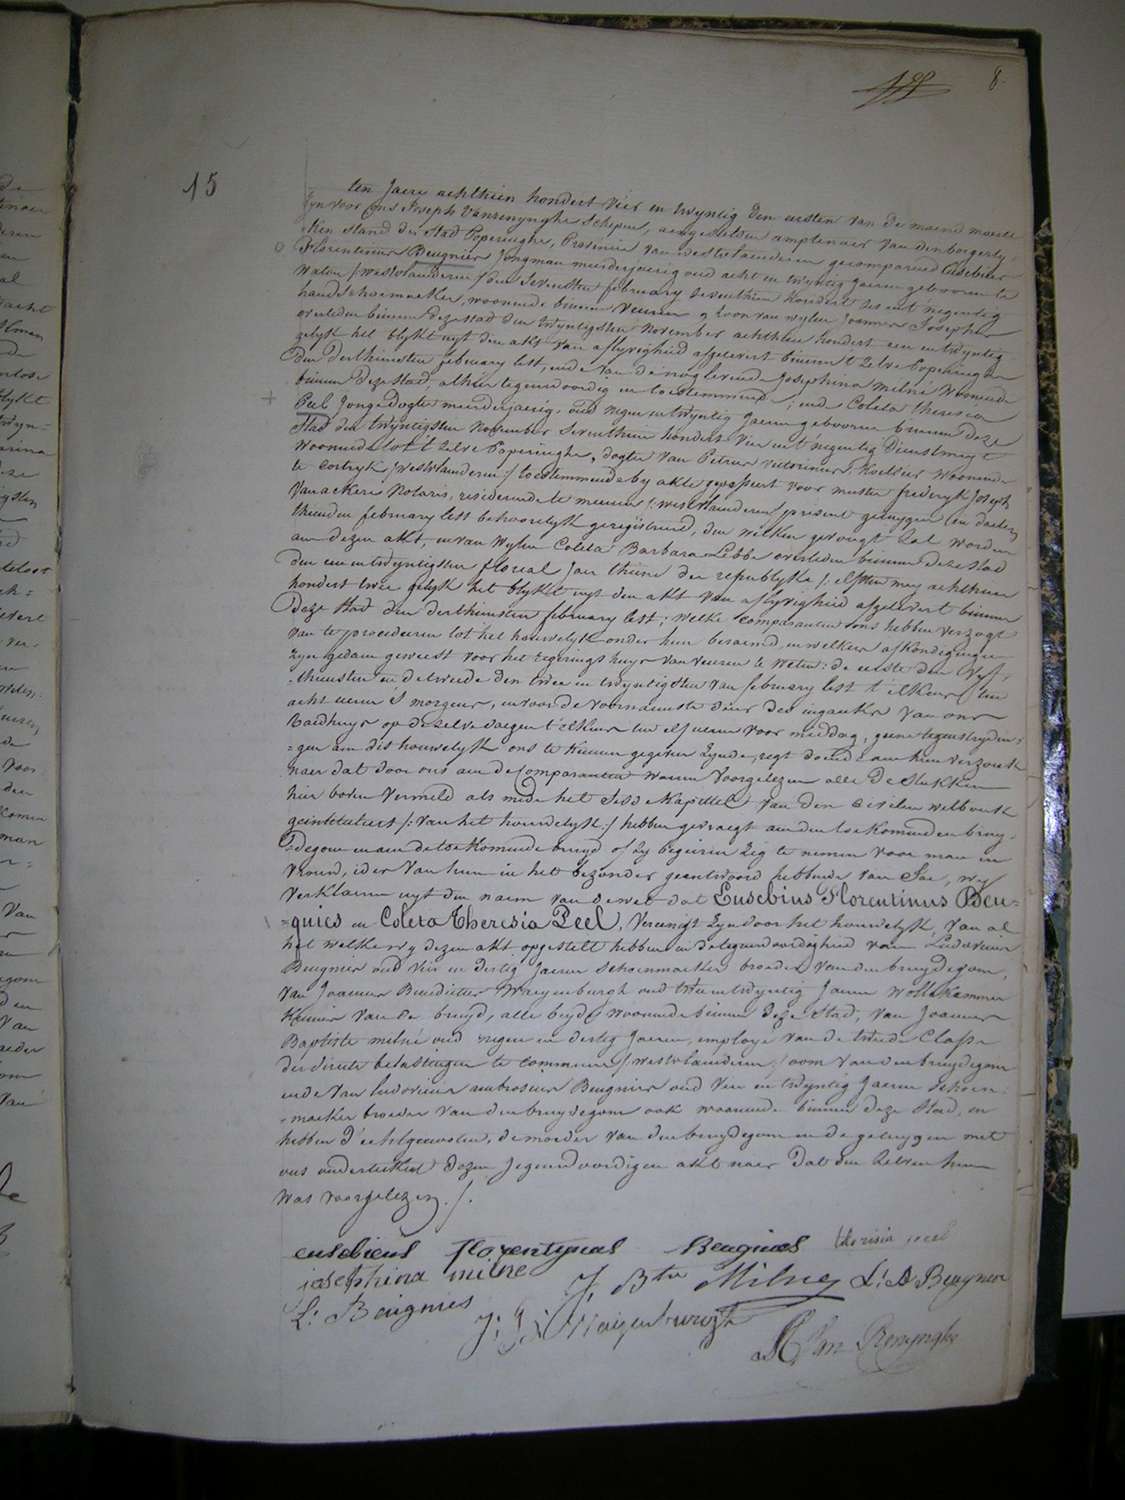 8.
15
ten Jaere achthien hondert vier en twyntig den eersten van de maend maerte
zyn voor ons Joseph Vanrenynghe Schepen, aengestelden amptenaer van den borgerly
ken stand der Stad Poperinghe, Provincie van westvlaenderen gecompareerd Eusebius
Florentinus Beugnies Jongman meerderjaerig oud acht en twyntig Jaeren gebooren te
Watou /: westvlaenderen :/ den sevensten february seventhien hondert ses en t' negentig
handschoenmaeker, woonende binnen veurne, zoon van wylen Joannes Josephus
overleden binnen deze stad den twyntigsten November achthien hondert een en twyntig
gelyk het blykt uyt den akt van aflyvigheid afgelevert binnen t' zelve Poperinghe
den derthiensten february lest, ende van de nog levende Josephina Milné Woonende
binnen deze stad, alhier tegenwoordig en toestemmende; ende Coleta Theresia
Peel Jongedogter meerderjaerig, oud negen en twyntig Jaeren geboorne binnen deze
Stad den twyntigsten November Seventhien hondert vier en t' negentig Dienstmeyt
Woonende tot t' zelve Poperinghe, dogter van Petrus victorinus, Koetsier woonende
te Cortryk /: westvlaenderen :/ toestemmende by akte gepasseert voor meester frederyk Joseph
Vanackere Notaris, resideerende te meenen /: westvlaenderen present getuygen en
february lest behoorelyk geregistreerd, den welken gevoegt zal worden
aen dezen akt, en van wylen Coleta Barbara Lebbe overleden binnen deze stad
den een en twyntigsten floreal Jaer thiene der republyke /: elfsten mey achthien
hondert twee gelyk het blykt uyt den akt van aflyvigheid afgelevert binnen
deze stad den derthiensten february lest; welke comparanten ons hebben verzogt
van te procederen tot het houwelyk onder hun beraemd, en welkers afkondigingen
zyn gedaen geweest voor het regeringshuys van veurne te weten: de eerste den vyf-
thiensten en de tweede den twee en twyntigsten van february lest t' elkens ten
acht uren 's morgens, en voor de voornaemste deur den ingank van ons
Raedhuys op de zelve daegen t' elkens ten elf uren voor middag, geene tegenstrydin-
=gen aen dit houwelyk ons te kennen gegeven zynde, regt doende aen hun verzoek
naer dat door ons aen de comparanten waeren voorgelezen alle de stukken
hier boven vermeld als mede het seste Kapittel van den civilen wetboek
geintituleert /: van het houwelyk :/ hebben gevraegt aen den toekomenden bruy-
=degom en aen de toekomende bruyd of zy begeiren zig te nemen voor man en
vrouw, ider van hun in het bezonder geantwoord hebbende van Jae, wy
verklaeren uyt den naem van de wet dat Eusebius Florentinus Beu-
=gnies en Coleta Theresia Peel, vereenigt zyn door het houwelyk, van al
het welke wy dezen akt opgestelt hebben in de tegenwoordigheid van Ludovicus
Beugnies oud vier en dertig Jaeren schoenmaeker broeder van den bruydegom,
van Joannes Benedictus Wreyenburgh oud twee en twyntig Jaeren Wollekammer
Kennis van de bruyd, alle beyde woonende binnen deze stad, van Joannes
Baptiste milné oud negen en dertig Jaeren, employe van de tweede Classe
der directe belastingen te Commene /: westvlaenderen :/ oom van den bruydegom
ende van Ludovicus ambrosius Beugnies oud vier en twyntig Jaeren schoen-
=maeker broeder van den bruydegom ook woonende binnen deze Stad, en
hebben d' echtgenooten, de moeder van den bruydegom en de getuygen met
ons onderteekent dezen jegenwoordigen akt naer dat den zelven hun
was voorgelezen. /.
eusebieus florentynus Beugnies therisia peel
iosephina milne J. Bte Milné L: A Beugnies
L: Beugnies
J: B: Wreigenburgh
J Van Renynghe